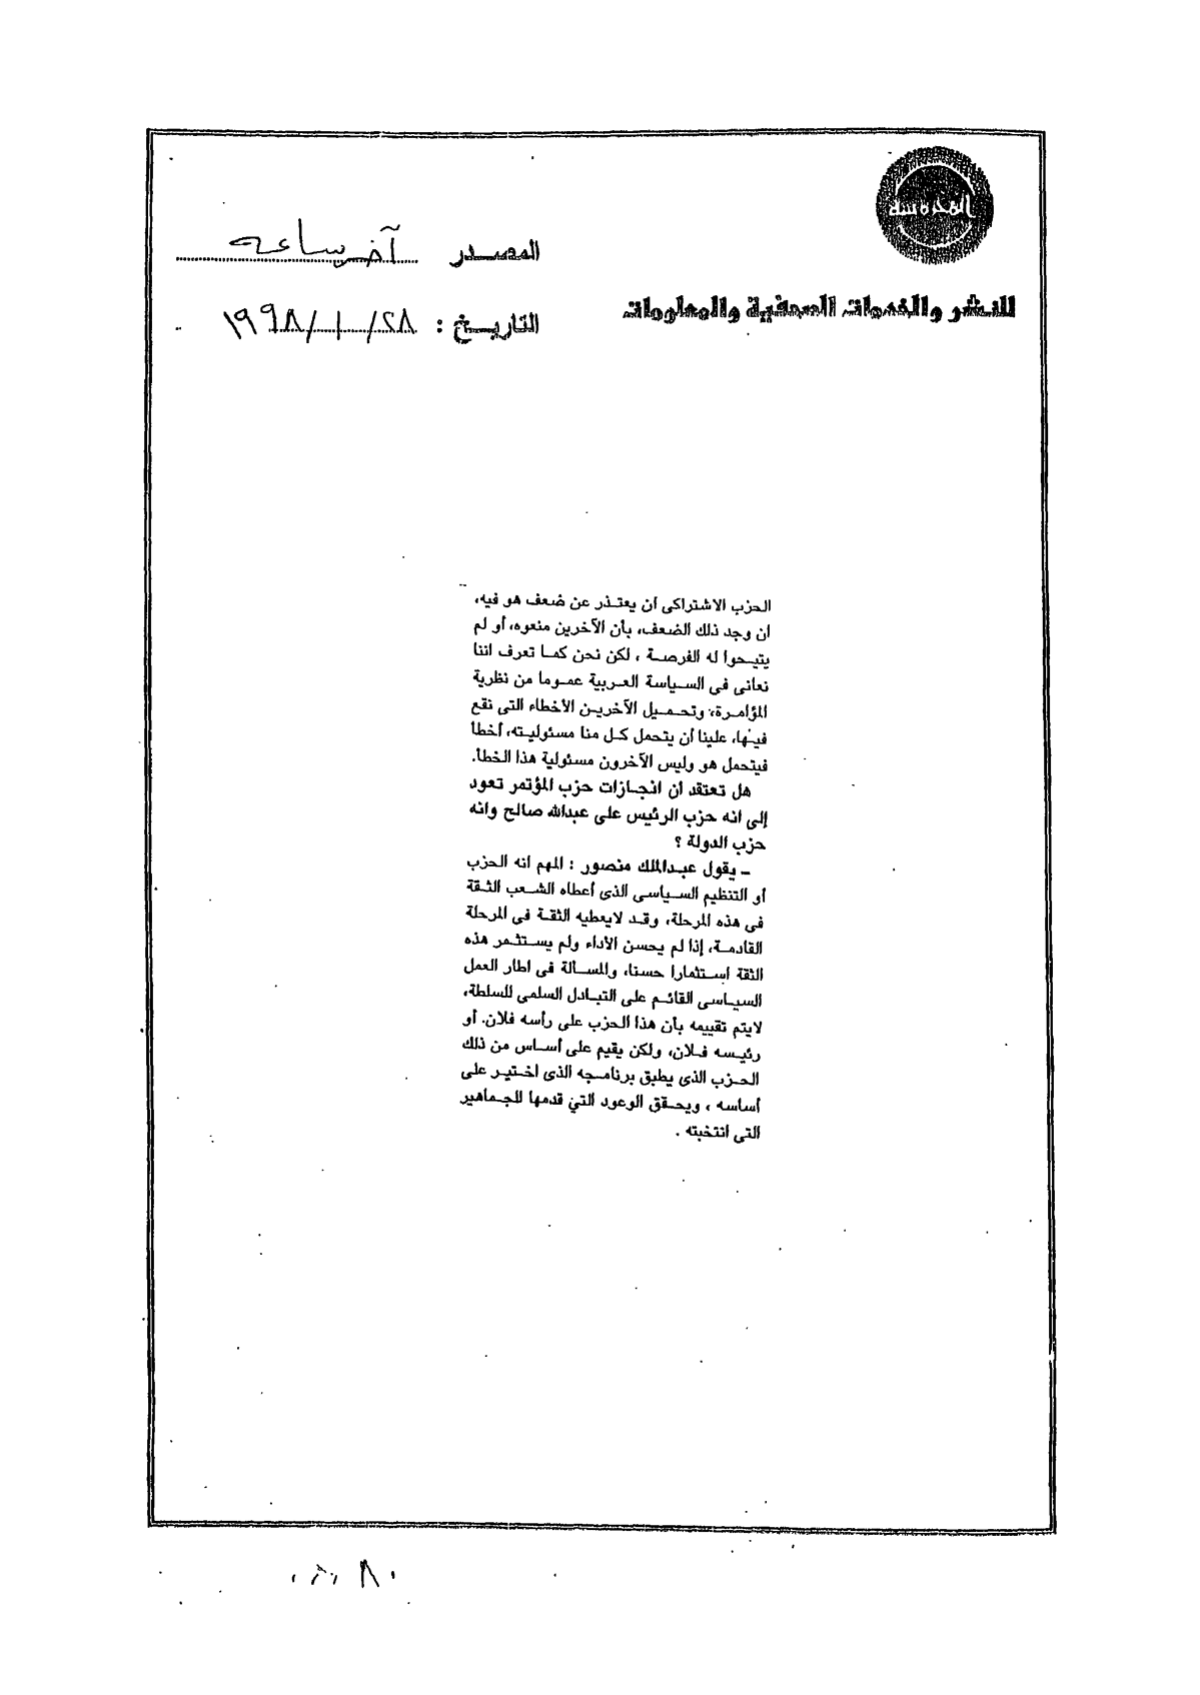 المصدر آخر ساعه
للنشر والخدمات الصحفية والمعلومات
التاريخ : ٢٨/١/١٩٩٨
الحزب الاشتراكى أن يعتذر عن ضعف هو فيه،
ان وجد ذلك الضعف، بأن الآخرين منعوه، أو لم
يتيحوا له الفرصة ، لكن نحن كما تعرف اننا
نعانى فى السياسة العربية عموما من نظرية
المؤامرة، وتحميل الآخرين الأخطاء التى نقع
فيها، علينا أن يتحمل كل منا مسئوليته، أخطأ
فيتحمل هو وليس الآخرون مسئولية هذا الخطأ.
هل تعتقد أن انجازات حزب المؤتمر تعود
إلى انه حزب الرئيس على عبدالله صالح وانه
حزب الدولة ؟
ـ يقول عبدالملك منصور : المهم انه الحزب
أو التنظيم السياسى الذى أعطاه الشعب الثقة
فى هذه المرحلة، وقد لايعطيه الثقة فى المرحلة
القادمة، إذا لم يحسن الأداء ولم يستثمر هذه
الثقة استثمارا حسنا، والمسألة فى اطار العمل
السياسى القائم على التبادل السلمى للسلطة،
لايتم تقييمه بأن هذا الحزب على رأسه فلان. أو
رئيسه فلان، ولكن يقيم على أساس من ذلك
الحزب الذى يطبق برنامجه الذى اختير على
أساسه ، ويحقق الوعود التى قدمها للجماهير
التى انتخبته .